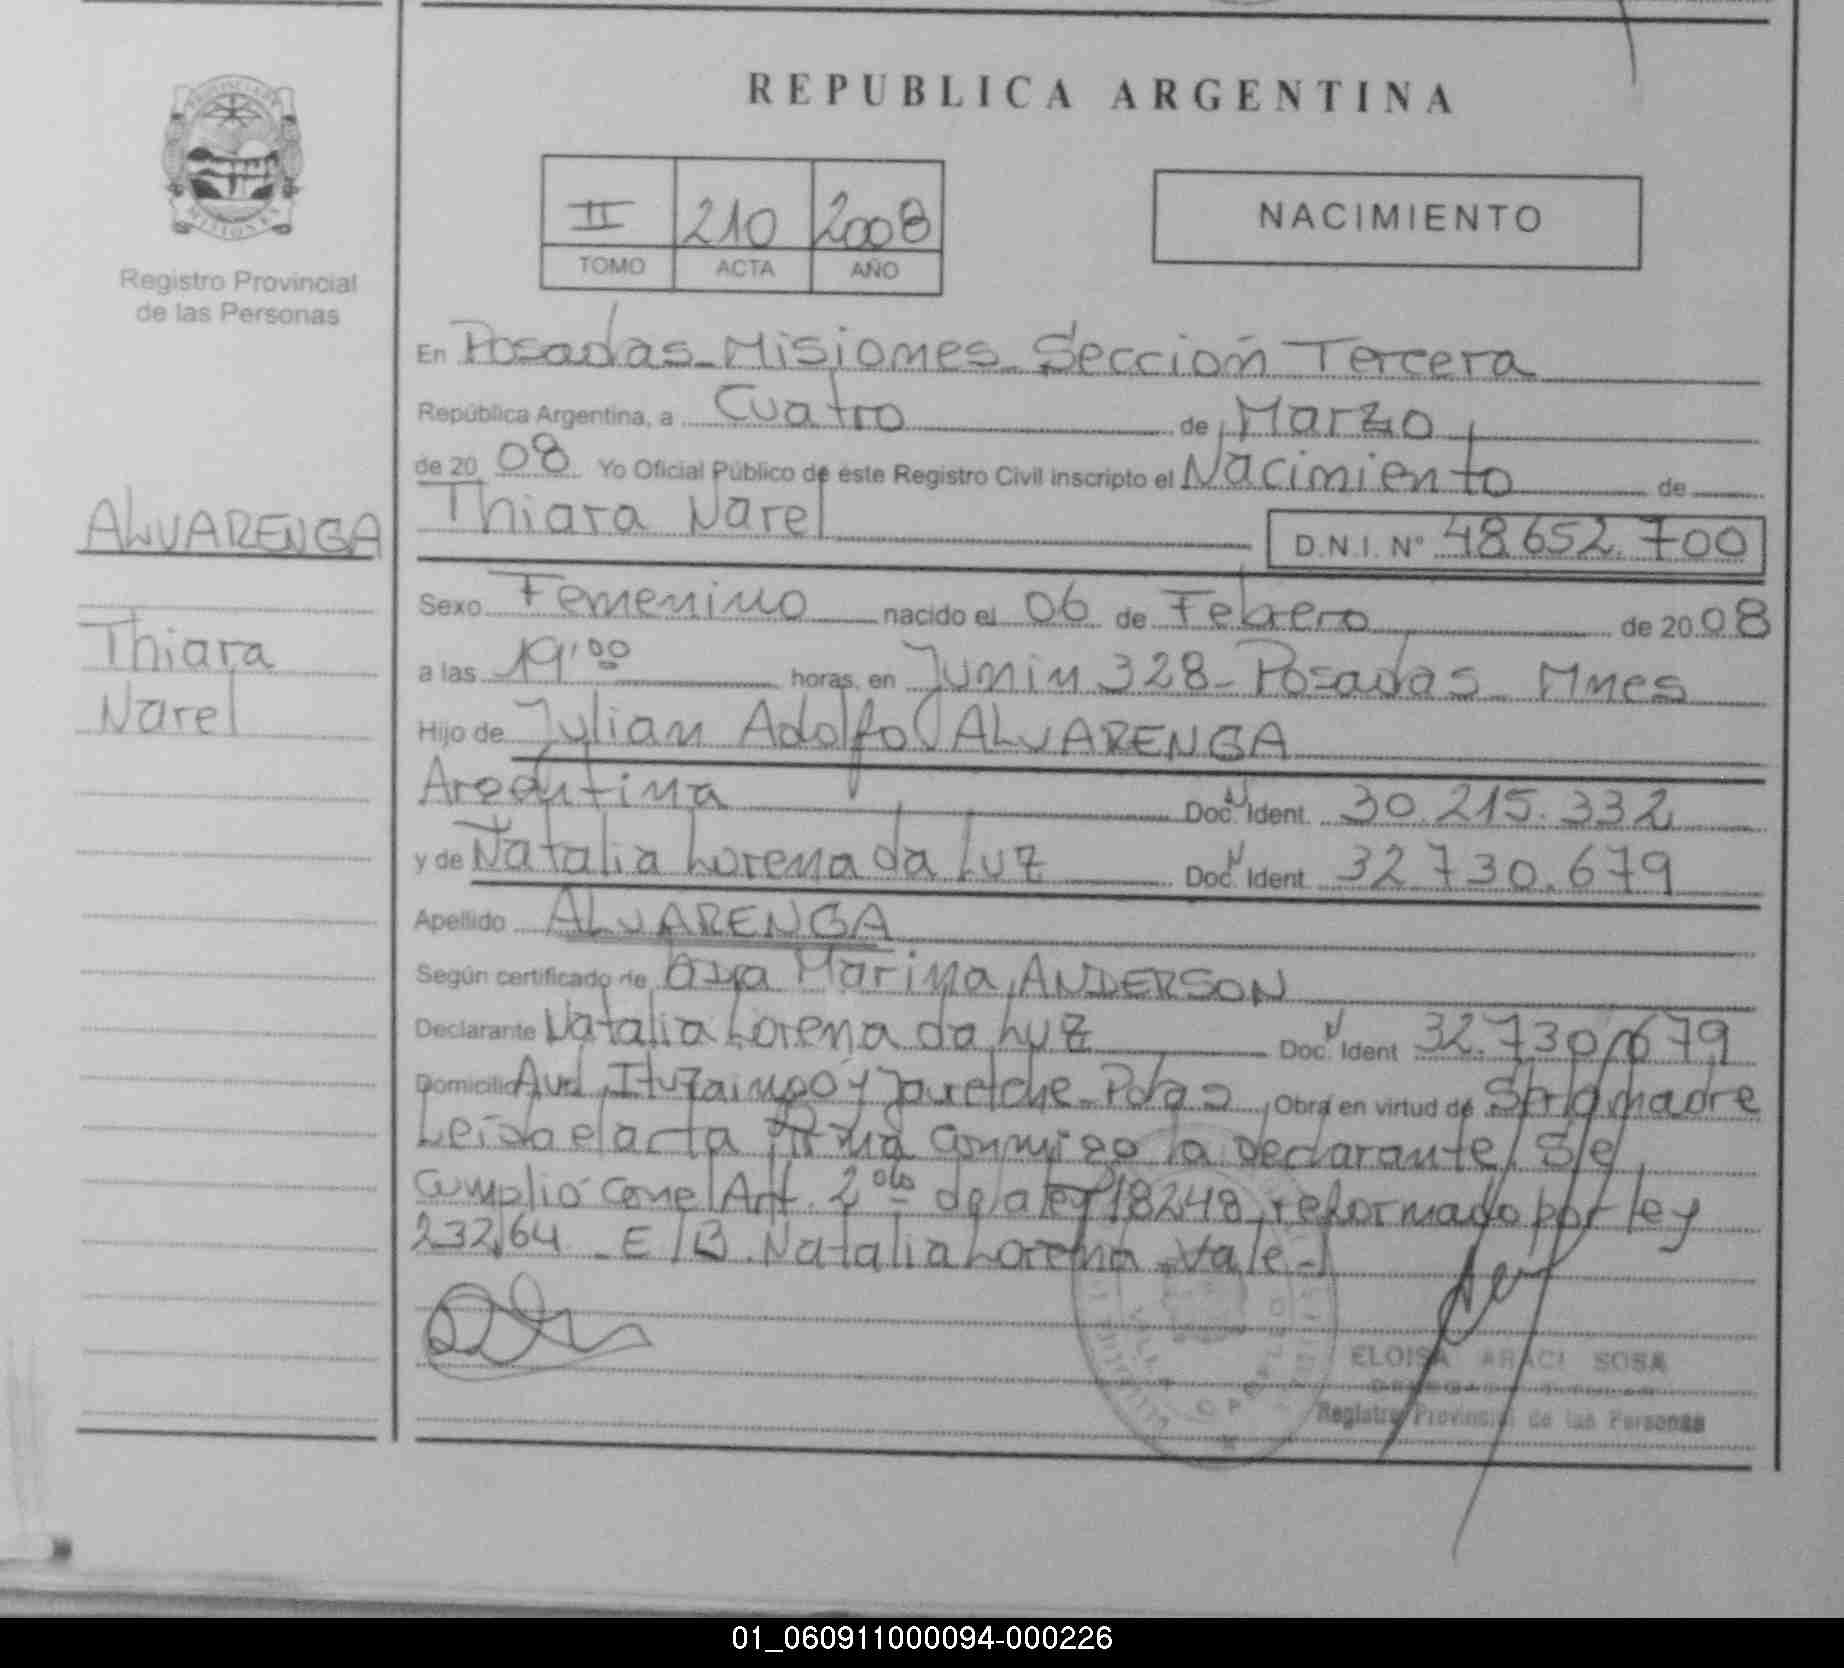 REPUBLICA ARGENTINA
II 210 2008
TOMO ACTA AÑO
NACIMIENTO
Registro Provincial
de las Personas
ALVARENGA
Thiara
Narel
En Posadas - Misiones - Sección Tercera
República Argentina, a Cuatro de Marzo
de 20 08 Yo Oficial Público de este Registro Civil inscripto el Nacimiento de
Thiara Narel D.N.I. Nº 48.652.700
Sexo Femenino nacido el 06 de Febrero de 20 08
a las 19:00 horas, en Junin 328 - Posadas - Mnes
Hijo de Julian Adolfo ALVARENGA
Argentina Doc. Ident. 30.215.332
y de Natalia Lorena da Luz Doc. Ident 32.730.679
Apellido ALVARENGA
Según certificado de Marina ANDERSON
Declarante Natalia Lorena da Luz Doc. Ident 32.730.679
Domicilio Avd. Ituzaingó y Jauretche - Pdas Obra en virtud de madre
Leída el acta firma conmigo la declarante S/e
cumplió con el Art. 2do de la ley 18248 reformado por ley
232/64 - E/B. Natalia Lorena - Vale -
ELOISA ARACI SOSA
Registro Provincial de las Personas
01_060911000094-000226